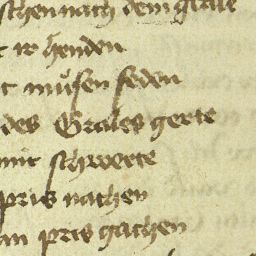 schen nach dem grale
t ir henden
t muͤsen seden
des Grales gerte
mit schwerte
pris nachen
an pris gachen